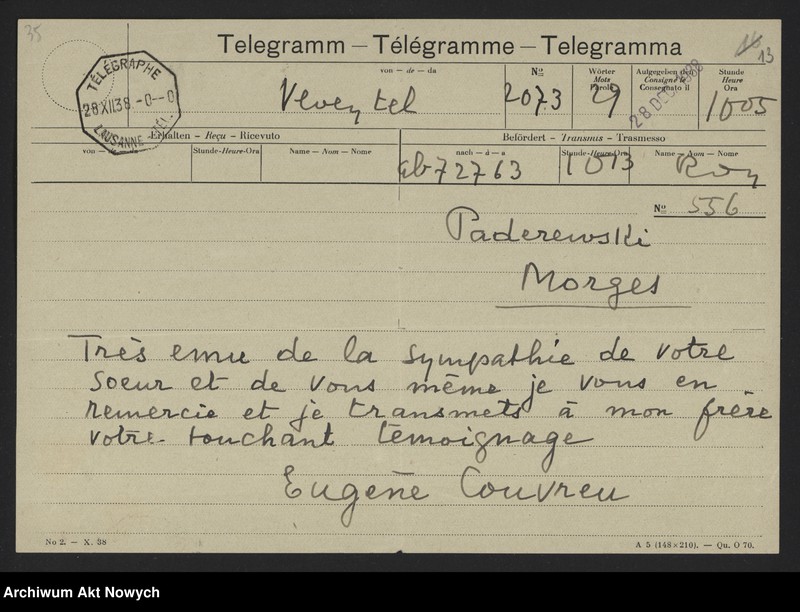 35
Telegramm – Télégramme – Telegramma
13
TÉLÉGRAPHE
28XII38.-0--0
LAUSANNE
von – de – da
Vevey tel
No
2073
Wörter
Mots
Parole
29
Aufgegeben den
Consigné le
Consegnato il
28 DEC 1938
Stunde
Heure
Ora
1005
Erhalten – Reçu – Ricevuto
Befördert – Transmis – Trasmesso
von – de – da
Stunde-Heure-Ora
Name – Nom – Nome
nach – à – a
Stunde-Heure-Ora
Name – Nom – Nome
72763
1013
No 556
Paderewski
Morges
Très emu de la sympathie de votre
soeur et de vous même je vous en
remercie et je transmets à mon frère
votre touchant témoignage
Eugène Couvreu
No 2. – X. 38
A 5 (148×210). – Qu. O 70.
Archiwum Akt Nowych